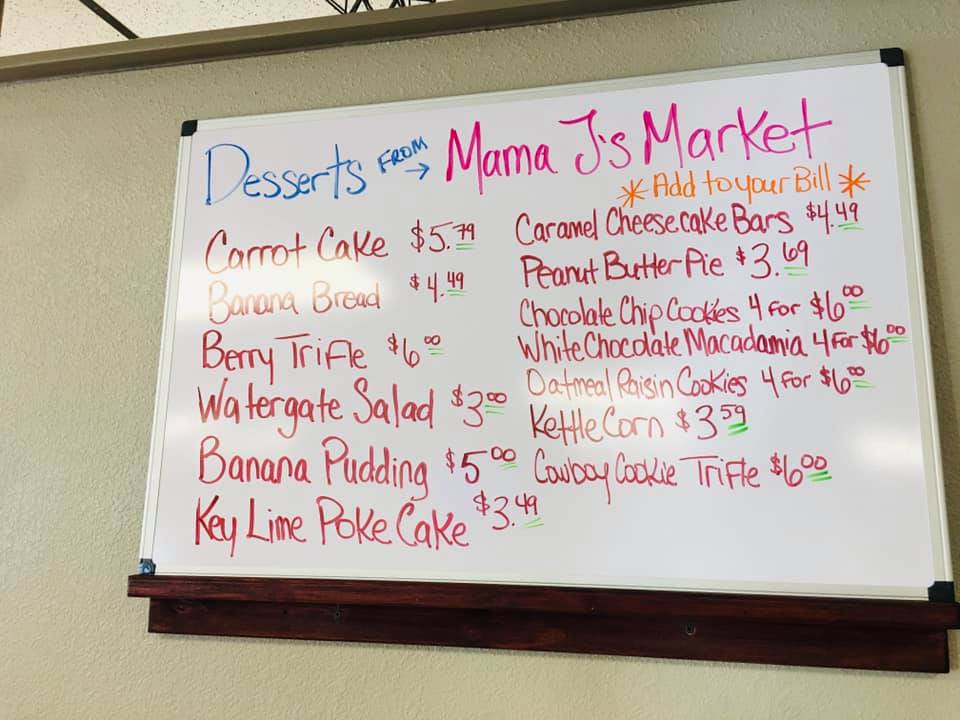 Desserts FROM → Mama J's Market
* Add to your Bill *
Carrot Cake $5.79
Banana Bread $4.49
Berry Trifle $6.00
Watergate Salad $3.00
Banana Pudding $5.00
Key Lime Poke Cake $3.49
Caramel Cheesecake Bars $4.49
Peanut Butter Pie $3.69
Chocolate Chip Cookies 4 for $6.00
White Chocolate Macadamia 4 for $6.00
Oatmeal Raisin Cookies 4 for $6.00
Kettle Corn $3.59
Cowboy Cookie Trifle $6.00